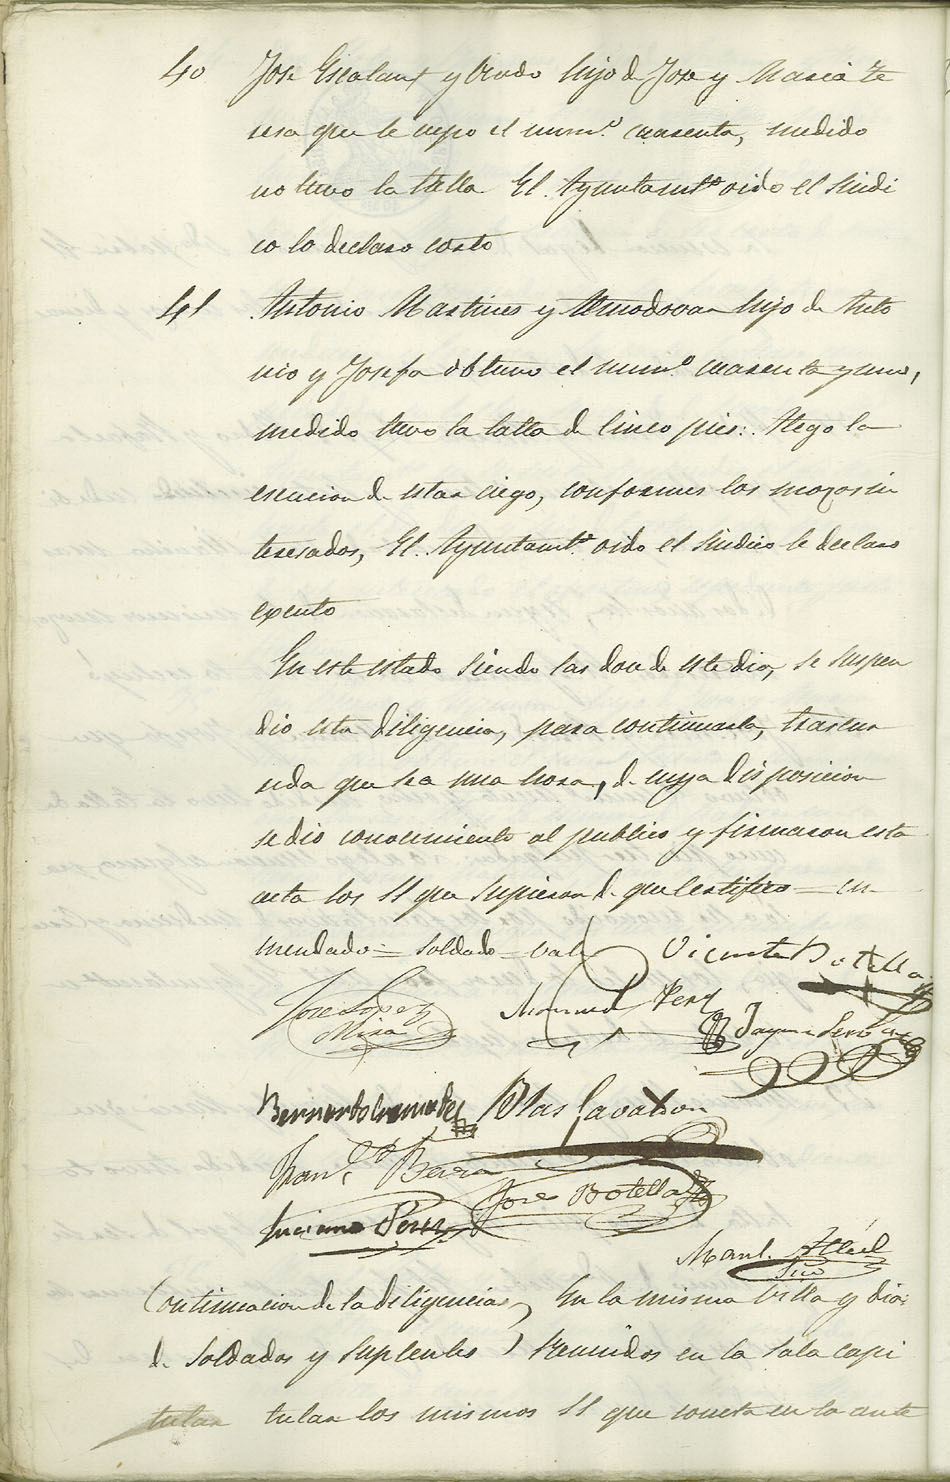 40 Jose Escalant y Prado hijo d Jose y Maria Te
resa que le cupo el num.º cuarenta, medido
no tuvo la talla El Ayuntamtº oido el Sindi
co lo declaro corto
41 Antonio Martines y Almodovar hijo de Anto
nio y Josefa obtuvo el num.º cuarenta y uno,
medido tuvo la talla de cinco pies: Alego la
escucion de estar ciego, conformes los mozos in
teresados, El Ayuntamtº oido el Sindico le declaro
exento
En este estado siendo las doce de este dia, se suspen
dio esta diligencia, para continuarla, trascur
rida que sea una hora, de cuya disposicion
se dio conocimiento al publico y firmaron esta
acta los SS que supieron d. que certifico = en
mendado = soldado = vale
Vicente Botella
Jose Lopez
Mira
Manuel Perez
Jayme
Bernardo Gonzalez
Blas
Franco Berna
Jose Botella
Luciano Perez
Manl.
Srio
Continuacion de la diligencia, En la misma Villa y dia:
de Soldados y Suplentes ) reunidos en la Sala capi
tular tular los mismos SS que consta en la ante